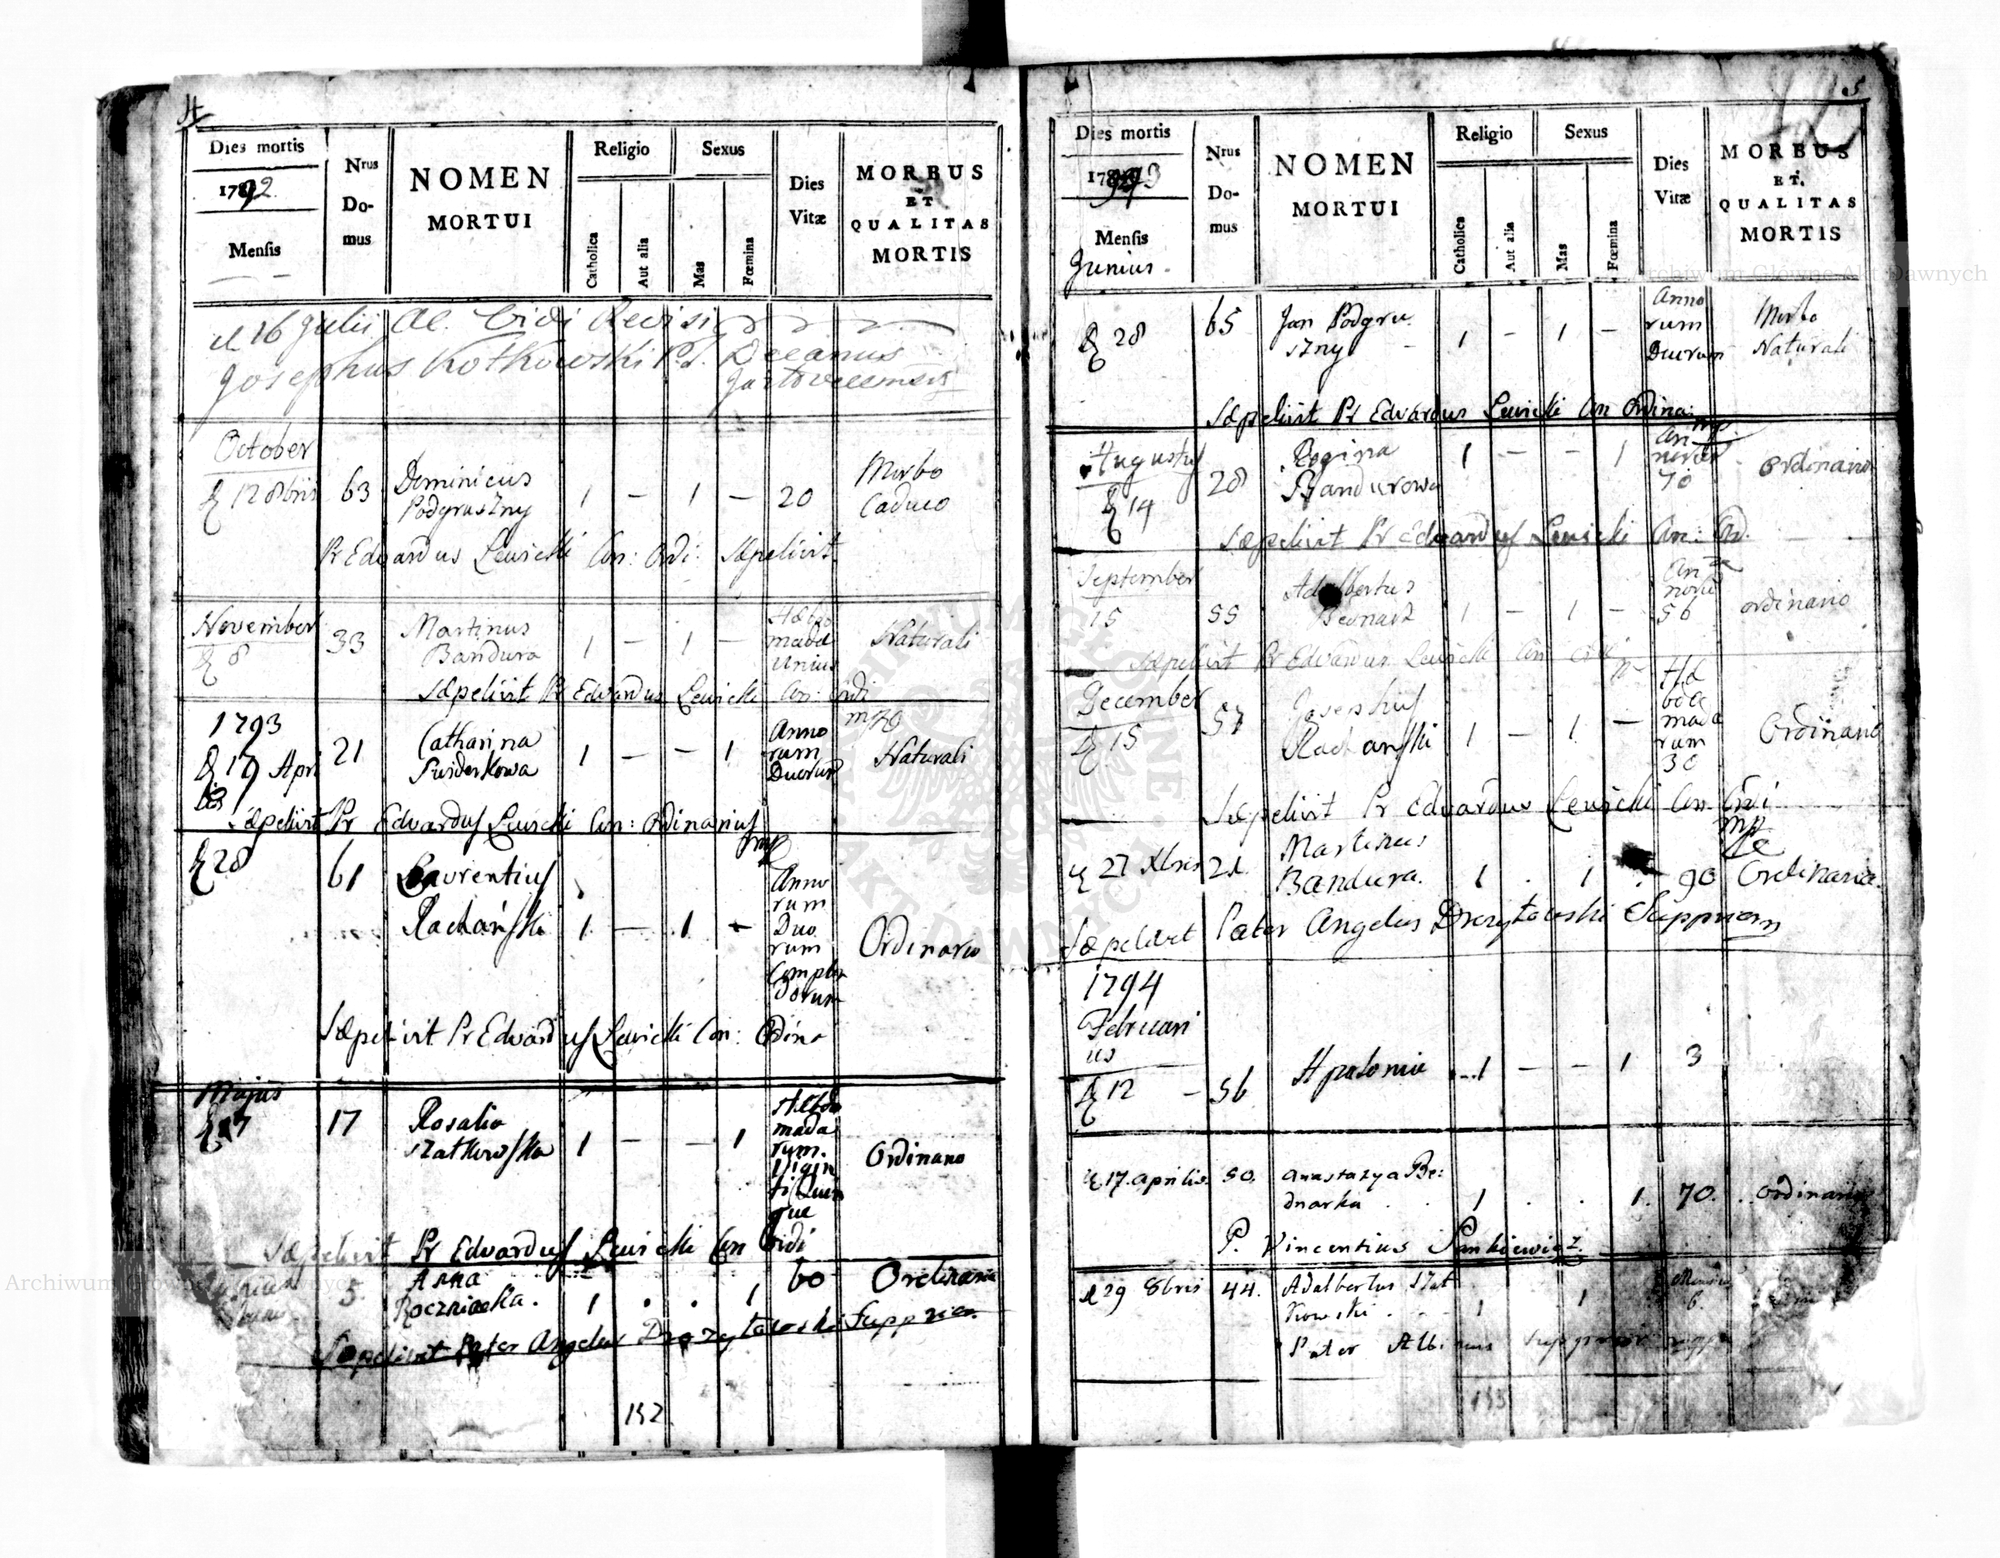 4
Dies mortis
1792
Mensis
Nrus
Do-
mus
NOMEN
MORTUI
Religio
Catholica
Aut alia
Sexus
Mas
Fœmina
Dies
Vitæ
MORBUS
ET
QUALITAS
MORTIS
16 Julii
Josephus Kotkowski Decanus
October
12 8bris 63 Dominicus
Podgruszny 1 – 1 – 20 Morbo
Caduco
Pr Edvardus Lewicki Con: Ordi: Sæpelivit
November
8 33 Martinus
Bandura 1 – 1 – Hebdo
mada
Unius Naturali
Sæpelivit Pr Edvardus Lewicki Con: Ordi
mp
1793
19 Apri
lis 21 Catharina
Swiderkowa 1 – – 1 Anno
rum
Duorum Naturali
Sæpelivit Pr Edvardus Lewicki Con: Ordinarius
mp
28 61 Laurentius
Rachański 1 – 1 – Anno
rum
Duo
rum
Comple
Ordinario
Sæpelivit Pr Edvardus Lewicki Con: Ordina
Majus
17 Rosalia
Szatkowska 1 – – 1 Hebdo
mada
rum
Vigin
ti
que Ordinario
Sæpelivit Pr Edvardus Lewicki Con Ordi
5 Anna
Roczniacka. 1 . . 1 60 Ordinaria
Sæpelivit Pater Angelus Drozytowski Supprior
152
5
Dies mortis
1793
Mensis
Junius
Nrus
Do-
mus
NOMEN
MORTUI
Religio
Catholica
Aut alia
Sexus
Mas
Fœmina
Dies
Vitæ
MORBUS
ET
QUALITAS
MORTIS
28 65 Jan Podgru
szny 1 – 1 – Anno
rum
Duorum Morbo
Naturali
Sæpelivit Pr Edvardus Lewicki Con Ordina:
mp
Augustus
14 28 Regina
Bandurowa 1 – – 1 An
norum
70 Ordinario
Sæpelivit Pr Edvardus Lewicki Con: Ord.
September
15 55 Adalbertus
Bednarz 1 – 1 – An
norum
56 ordinario
Sæpelivit Pr Edvardus Lewicki Con Ordi
December
15 57 Josephus
Rachański 1 – 1 – Heb
do
mada
rum
30 Ordinario
Sæpelivit Pr Edvardus Lewicki Con Ordi
mp
27 Xbris 21. Martinus
Bandura. 1 . 1 . 90 Ordinaria.
Sæpelivit Pater Angelus Drozytowski Supprior
1794
Februari
us
12 – 56 Apolonia 1 – – 1 3
17. aprilis. 50. Anastazya Be:
dnarka 1 . . 1. 70. ordinario
P. Vincentius Pankiewicz.
29 8bris 44. Adalbertus Szat
kowski 1 1 6.
Pater Albinus Supprior
153
Archiwum Główne Akt Dawnych
Archiwum Główne Akt Dawnych
ARCHIWUM GŁÓWNE AKT DAWNYCH